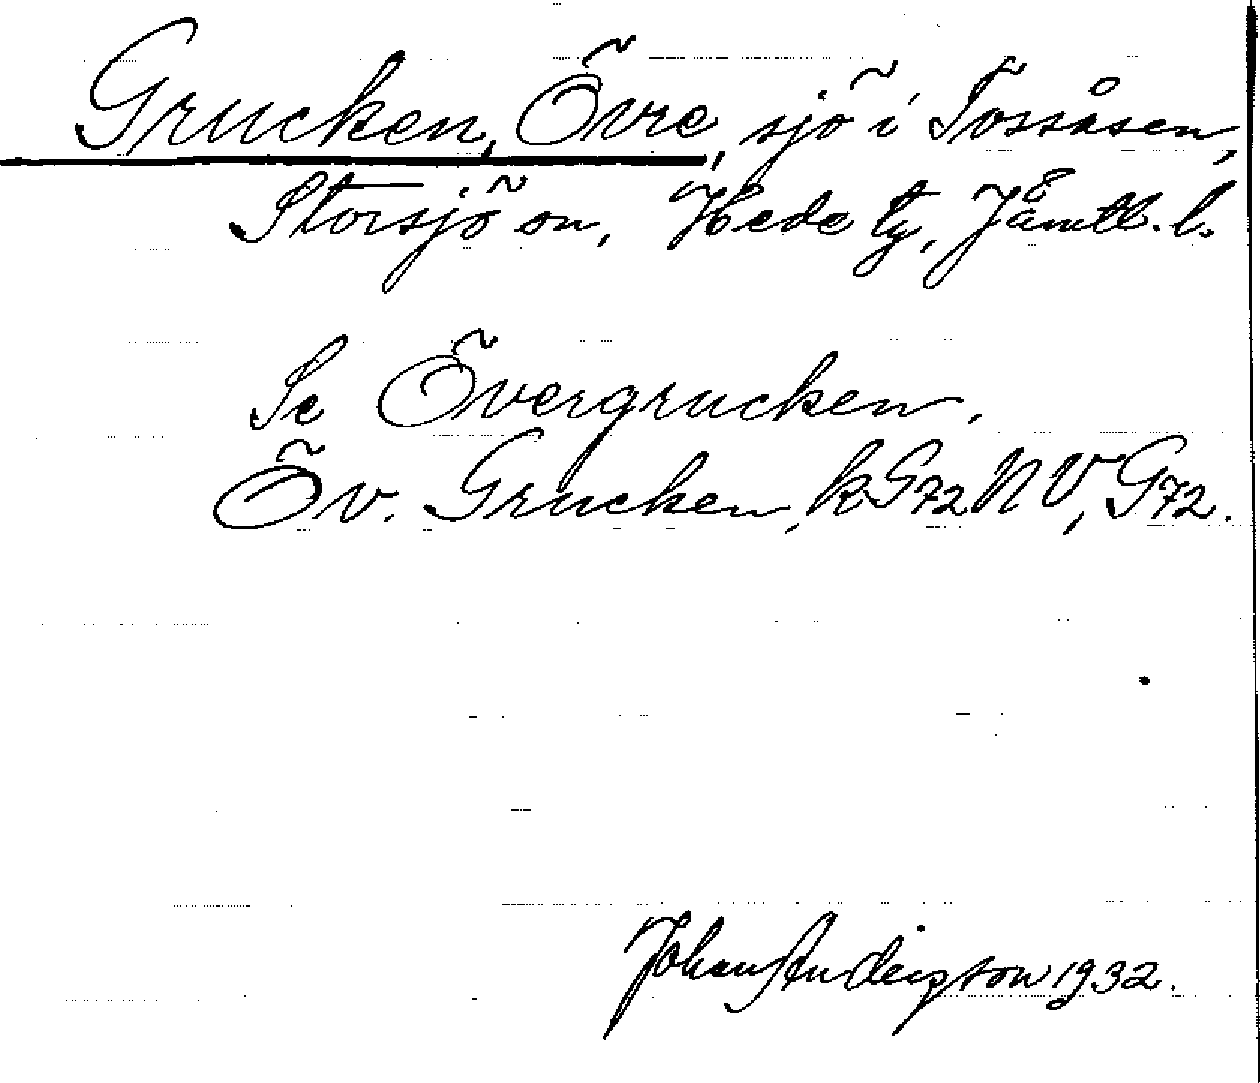 Grucken, Övre, sjö i Tossåsen,
Storsjö sn, Hede tg, Jämtl. l.
Se Övergrucken.
Öv. Grucken, k G72 NV, G72.
Johan Anderzson 1932.